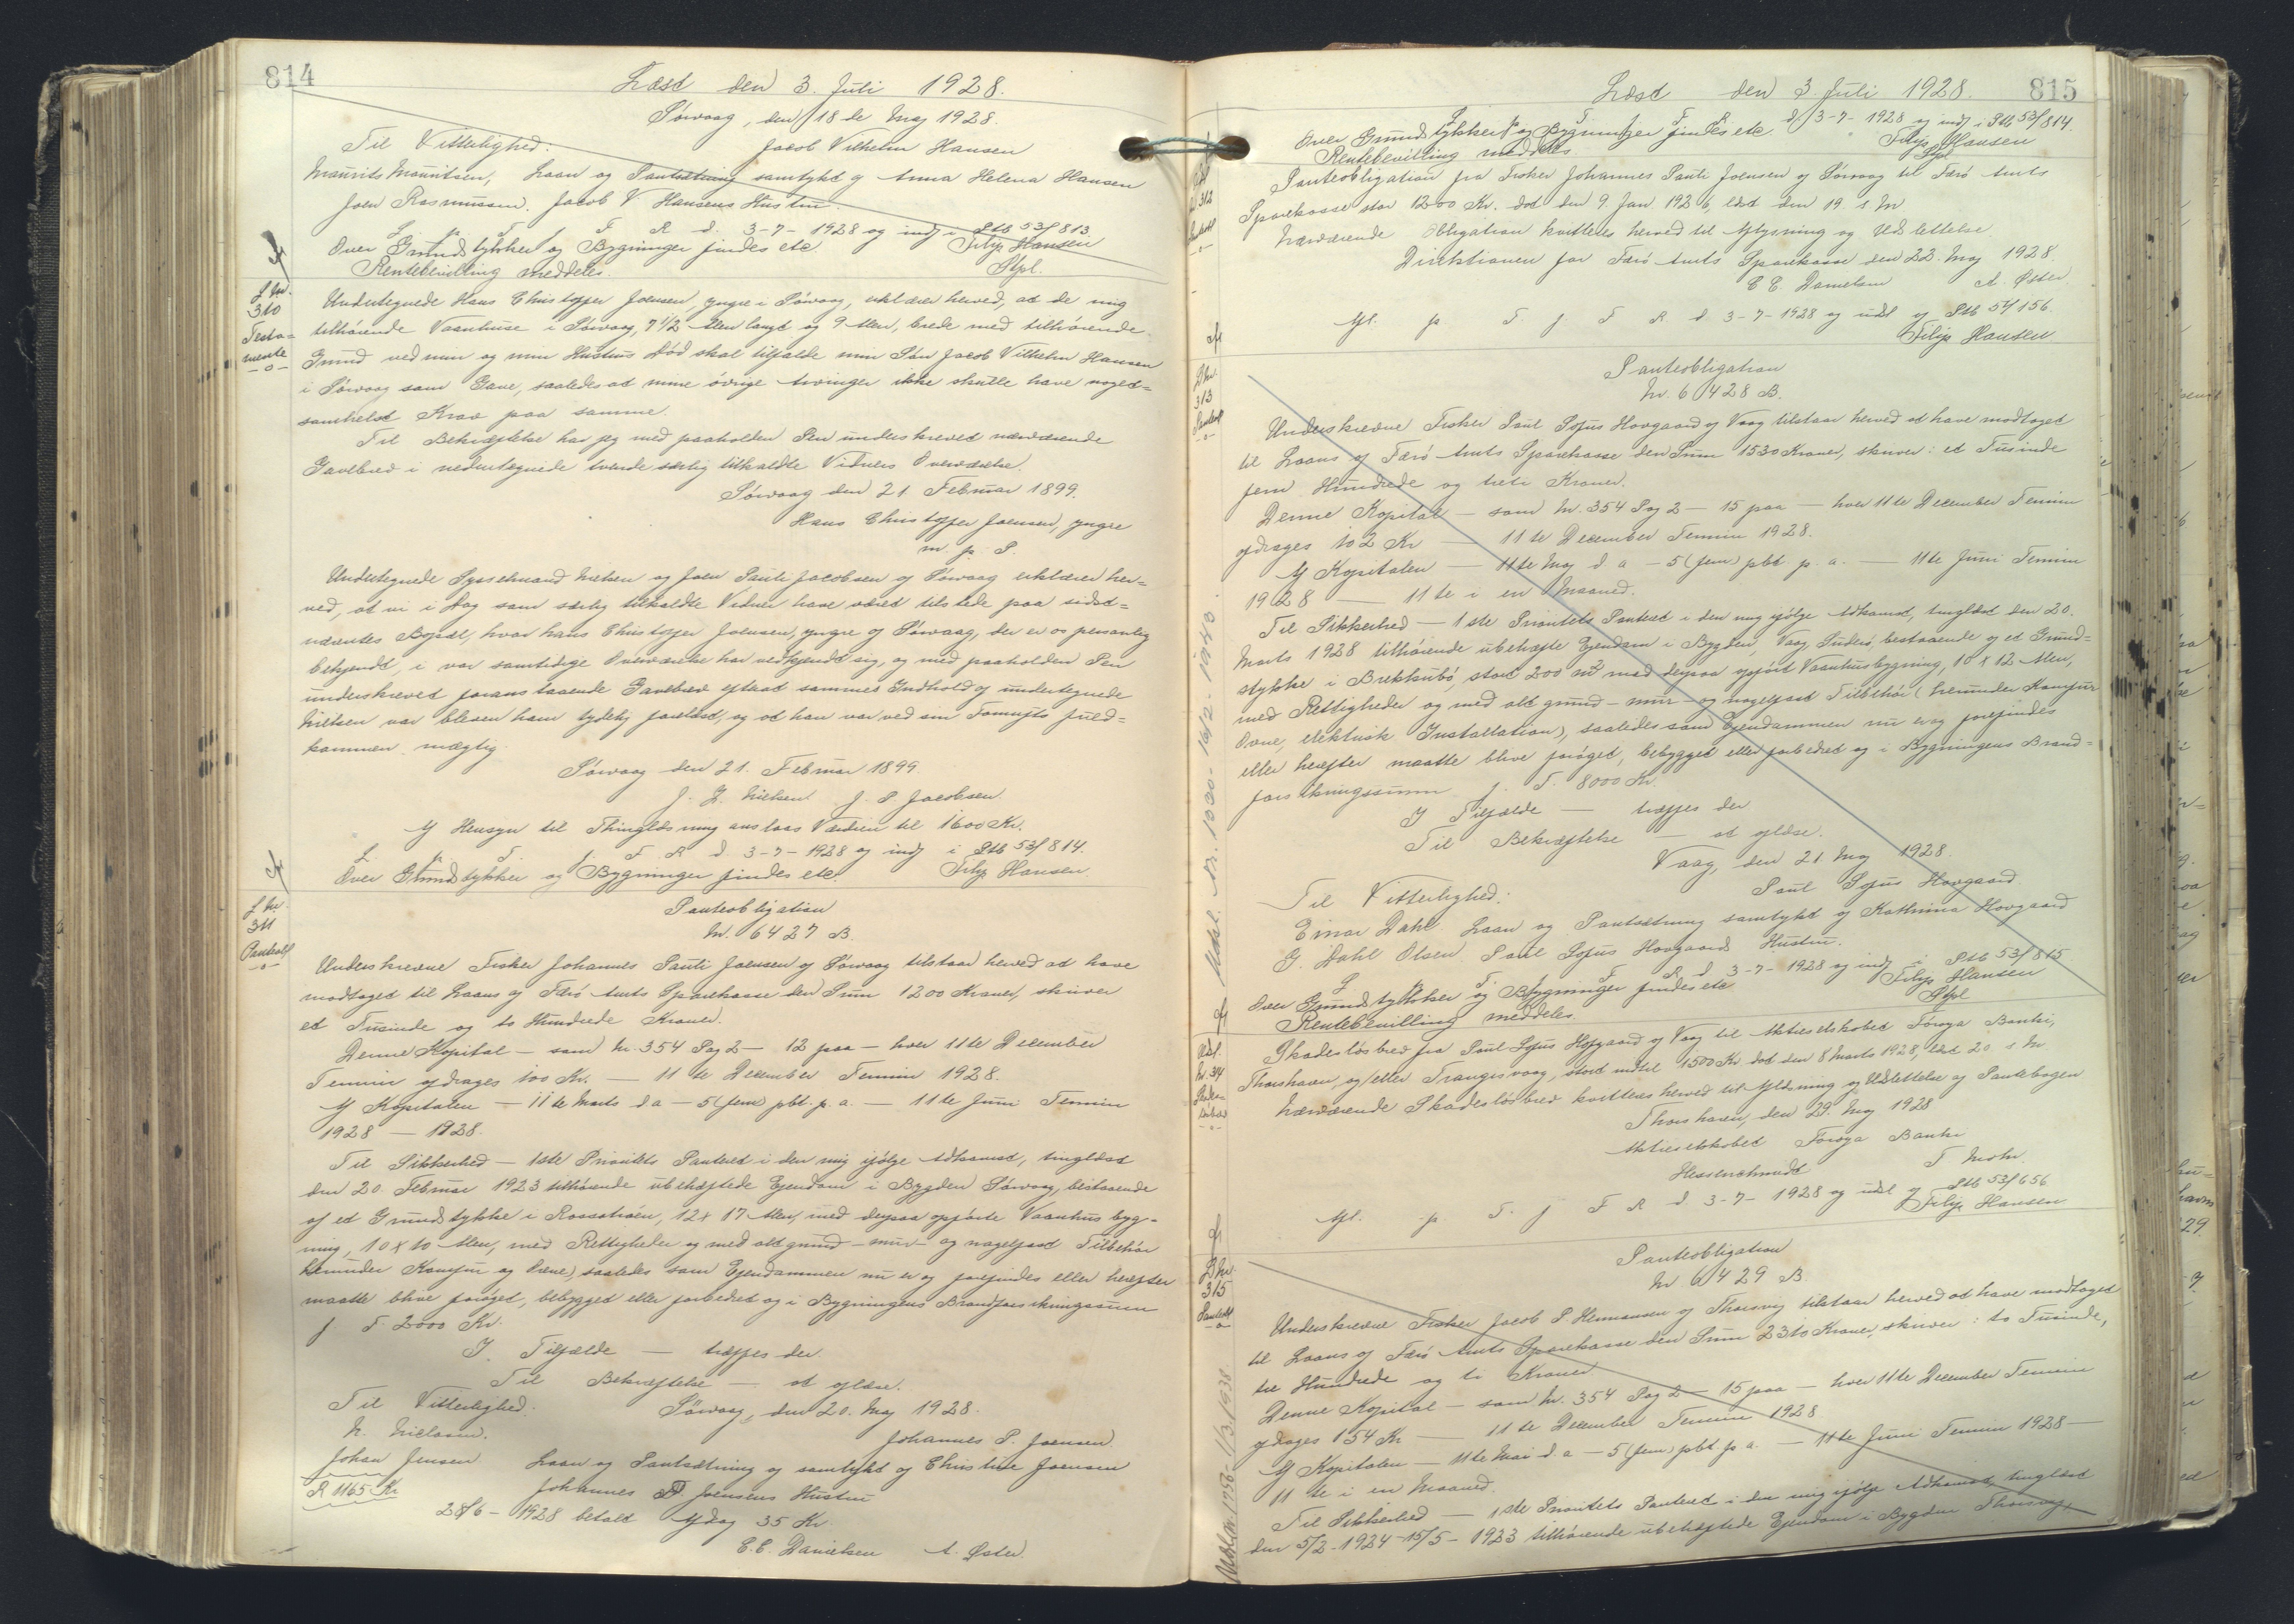 814
Læst den 3. Juli 1928.
Sörvaag, den 18 de Maj 1928.
Til Vitterlighed:
Jacob Vilhelm Hansen
Maurits Mauritsen, Laan og Pantsætning samtykt af Anna Helena Hansen
Joen Rasmussen. Jacob V Hansens Hustru.
L. p. T. f. F R d. 3-7-1928 og indf i Ptb 53/813.
Over Grundstykker og Bygninger findes etc. Filip Hansen
Rentebevilling meddeles. Stpl.
L Nr. 310 Testamente
Undertegnede Hans Christoffer Joensen, yngre i Sörvaag, erklærer herved, at de mig
tilhörende Vaanhuse i Sörvaag, 7 1/2 Alen langt og 9 Alen, brede med tilhörende
Grund ved min og min Hustrus Död skal tilfalde min Sön Jacob Vilhelm Hansen
i Sörvaag som Gave, saaledes at mine övrige Arvinger ikke skulle have noget-
somhelst Krav paa samme.
Til Bekræftelse har jeg med paaholden Pen underskrevet nærværende
Gavebrev i nedentegnede tvende særlig tilkaldte Vidners Overværelse.
Sörvaag den 21 Februar 1899.
Hans Christoffer Joensen, yngre
m. p. P.
Undertegnede Sysselmand Nielsen og Joen Pauli Jacobsen af Sörvaag erklærer her-
ved, at vi i Dag som særlig tilkaldte Vidner have været tilstede paa sidst-
nævntes Bopæl, hvor Hans Christoffer Joensen, yngre af Sörvaag, der er os personlig
bekjendt, i vor samtidige Overværelse har vedkjendt sig, og med paaholden Pen
underskrevet foranstaaende Gavebrev efterat sammes Indhold af undertegnede
Nielsen var bleven ham tydelig forelæst, og at han var ved sin Fornufts fuld-
kommen mægtig.
Sörvaag den 21. Februar 1899
J. Z. Nielsen J. P Jacobsen.
Af Hensyn til Thinglæsning anslaas Værdien til 1600 Kr.
L. p. T. f. F R d 3-7-1928 og indf i Ptb 53/814.
Over Grundstykker og Bygninger findes etc. Filip Hansen.
L Nr. 311 Panteobl
Panteobligation
Nr. 6427 B.
Underskrevne Fisker Johannes Pauli Joensen af Sörvaag tilstaar herved at have
modtaget til Laans af Færö Amts Sparekasse den Sum 1200 Kroner, skriver
et Tusinde og to Hundrede Kroner.
Denne Kapital – som Nr. 354 Pag 2 – 12 paa – hver 11te December
Termin afdrages 100 Kr. – 11te December Termin 1928.
Af Kapitalen – 11te Marts d a – 5 (fem) pbt. p. a. – 11te Juni Termin
1928 – 1928.
Til Sikkerhed – 1ste Prioritets Panteret i den mig ifölge Adkomst, tinglæst
den 20. Februar 1923 tilhörende ubehæftede Ejendom i Bygden Sörvaag, bestaaende
af et Grundstykke i Rossatröen, 12 x 17 Alen, med derpaa opförte Vaanhusbyg-
ning, 10 x 10 Alen, med Rettigheder og med alt grund- mur- og nagelfast Tilbehör
(herunder Komfur og Ovne), saaledes som Ejendommen nu er og forefindes eller herefter
maatte blive foröget, bebygget eller forbedret og i Bygningens Brandforsikringssum
f T. 2000 Kr.
I Tilfælde – træffes der
Til Bekræftelse – at aflæse.
Til Vitterlighed. Sörvaag, den 20. Maj 1928.
N. Nielsen. Johannes P. Joensen.
Johan Jensen. Laan og Pantsætning af samtykt af Christine Joensen
R 1165 Kr Johannes P. Joensens Hustru
28/6-1928 betalt Afdrag 35 Kr.
E. E. Danielsen A. Øster.
815
Læst den 3. Juli 1928.
L p T. f F R d 3-7-1928 og indf i Ptb 53/814.
Over Grundstykker og Bygninger findes etc. Filip Hansen
Rentebevilling meddeles. Stpl.
312
Panteobligation fra Fisker Johannes Pauli Joensen af Sörvaag til Færö Amts
Sparekasse stor 1200 Kr. dat den 9. Jan. 1926, læst den 19. s. M.
Nærværende Obligation kvitteres herved til Aflysning og Udslettelse.
Direktionen for Færö Amts Sparekasse den 22. Maj 1928.
E E. Danielsen A. Øster
Afl. p T. f F R d 3-7-1928 og udsl af Ptb 54/156.
Filip Hansen
L Nr. 313 Panteobl
Panteobligation
Nr. 6428 B.
Underskrevne Fisker Poul Sofus Hovgaard af Vaag tilstaar herved at have modtaget
til Laans af Færö Amts Sparekasse den Sum 1530 Kroner, skriver: et Tusinde
fem Hundrede og treti Kroner.
Denne Kapital – som Nr. 354 Pag 2 – 15 paa – hver 11te December Termin
afdrages 102 Kr – 11te December Termin 1928.
Af Kapitalen – 11te Maj d a – 5 (fem) pbt p. a. – 11te Juni Termin
1928 – 11te i en Maaned.
Til Sikkerhed – 1ste Prioritets Panteret i den mig ifölge Adkomst, tinglæst den 20.
Marts 1928 tilhörende ubehæfte Ejendom i Bygden, Vaag, Suderö, bestaaende af et Grund-
stykke i Brekkubö, stort 200 m² med derpaa opfört Vaanhusbygning, 10 x 12 Alen,
med Rettigheder og med alt grund- mur- og nagelfast Tilbehör (herunder Komfur
Ovne, elektrisk Installation), saaledes som Ejendommen nu er og forefindes
eller herefter maatte blive foröget, bebygget eller forbedret og i Bygningens Brand-
forsikringssum f. T. 8000 Kr.
I Tilfælde – træffes der
Til Bekræftelse – at aflæse.
Vaag, den 21 Maj 1928.
Til Vitterlighed: Poul Sofus Hovgaard.
Einar Dahl. Laan og Pantsætning samtykt af Kathrina Hovgaard
G. Dahl Olsen. Poul Sofus Hovgaards Hustru.
L p. T. f F R d 3-7-1928 og indf i Ptb 53/815
Over Grundstykker og Bygninger findes etc Filip Hansen
Rentebevilling meddeles. Stpl
Udsl. Nr. 1030-16/2-1943.
Skadeslösbrev fra Poul Sofus Hofgaard af Vaag til Aktieselskabet Föroya Banki,
Thorshavn, og/eller Trangisvaag, stort indtil 1500 Kr. dat den 8 Marts 1928, læst 20. s. M.
Nærværende Skadeslösbrev kvitteres herved til Aflæsning og Udslettelse af Pantebogen
Thorshavn, den 29. Maj 1928
Aktieselskabet Föroya Banki
Hessenschmidt T Mohr.
Afl. p. T. f F R d 3-7-1928 og udsl af Ptb 53/656
Filip Hansen
L Nr. 315 Panteobl
Panteobligation
Nr. 6429 B.
Underskrevne Fisker Jacob P. Hermansen af Thorsvig tilstaar herved at have modtaget
til Laans af Færö Amts Sparekasse den Sum 2310 Kroner, skriver: to Tusinde,
tre Hundrede og ti Kroner.
Denne Kapital – som Nr. 354 Pag 2 – 15 paa – hver 11te December Termin
afdrages 154 Kr – 11te December Termin 1928.
Af Kapitalen – 11te Mai d a – 5 (fem) pbt. p a. – 11te Juni Termin 1928 –
11 te i en Maaned.
Til Sikkerhed – 1ste Prioritets Panteret i den mig ifölge Adkomst, tinglæst
den 5/2-1924-15/5-1923 tilhörende ubehæftede Ejendom i Bygden Thorsvig,